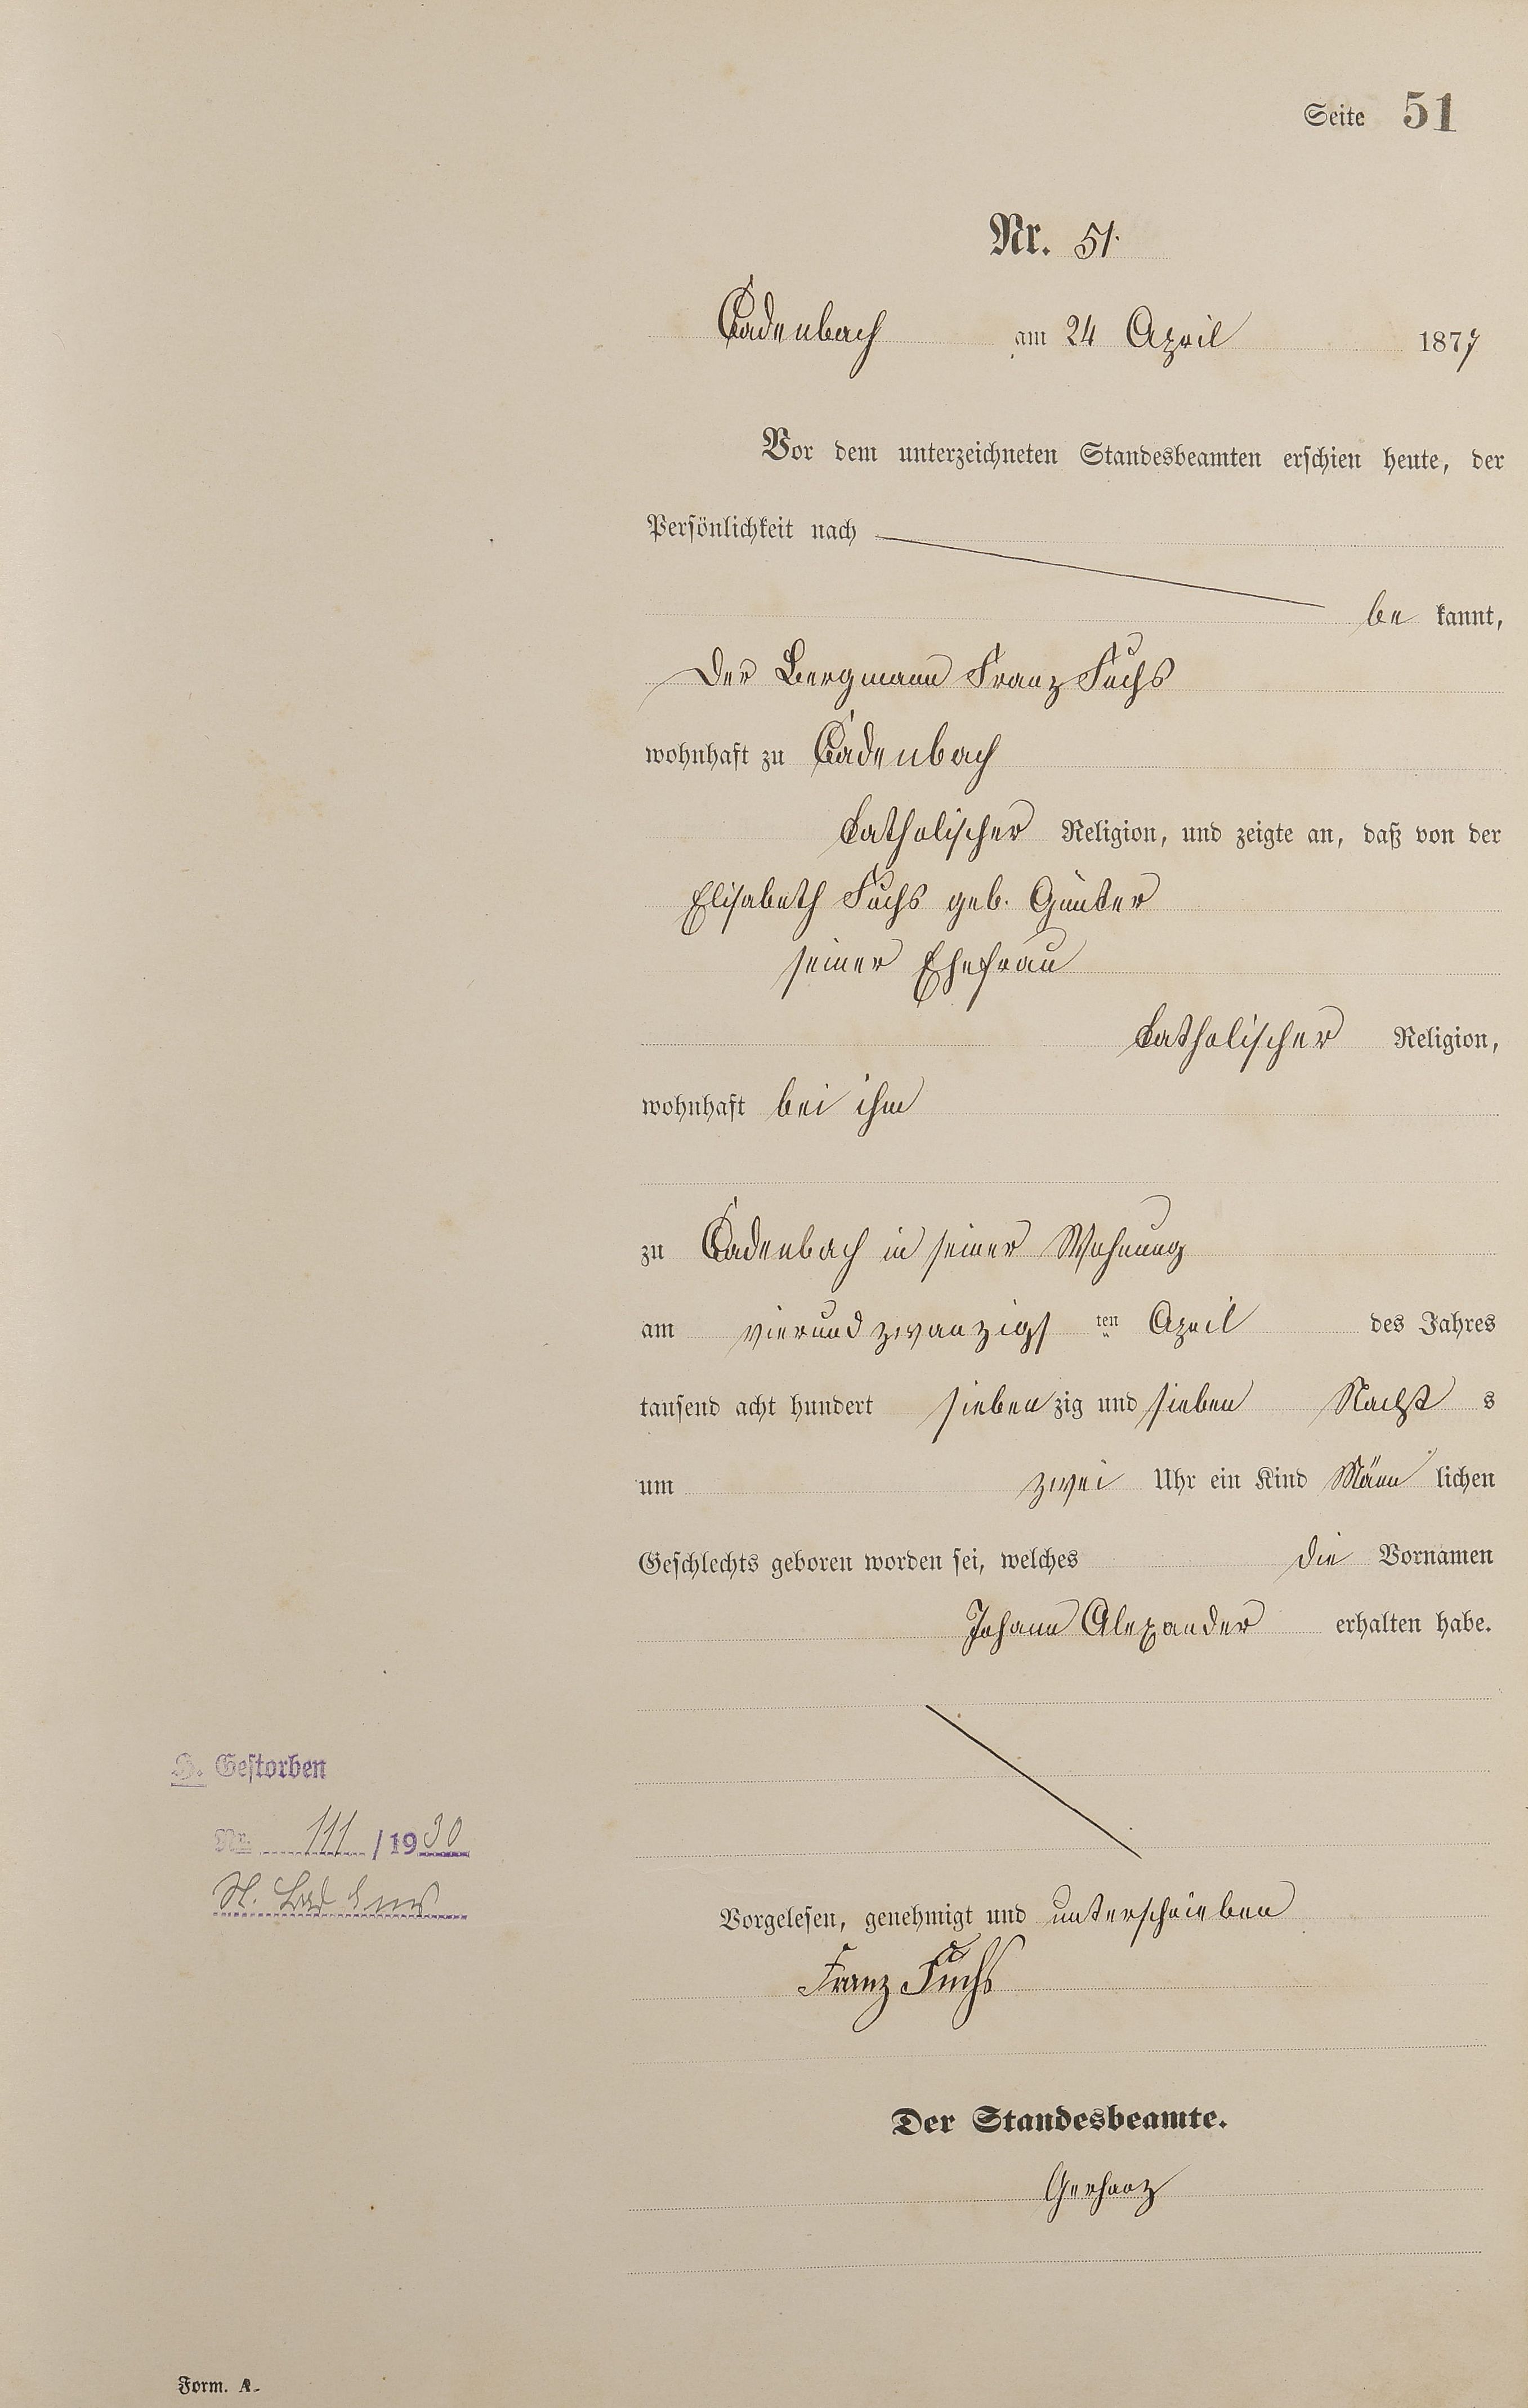 Seite 51
Nr. 51.
Cadenbach am 24 April 1877
Vor dem unterzeichneten Standesbeamten erschien heute, der
Persönlichkeit nach
be kannt,
Der Bergmann Franz Fuchs
wohnhaft zu Cadenbach
katholischer Religion, und zeigte an, daß von der
Elisabeth Fuchs geb. Günter
seiner Ehefrau
katholischer Religion,
wohnhaft bei ihm
zu Cadenbach in seiner Wohnung
am vierundzwanzigs ten April des Jahres
tausend acht hundert sieben zig und sieben Nacht s
um zwei Uhr ein Kind Männ lichen
Geschlechts geboren worden sei, welches die Vornamen
Johann Alexander erhalten habe.
H. Gestorben
Nr. 111 / 1930
St. Bad Ems
Vorgelesen, genehmigt und unterschrieben
Franz Fuchs
Der Standesbeamte.
Gerharz
Form. A.